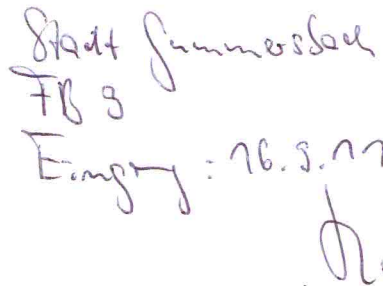 Stadt Gummersbach
FB 9
Eingang: 16.9.11